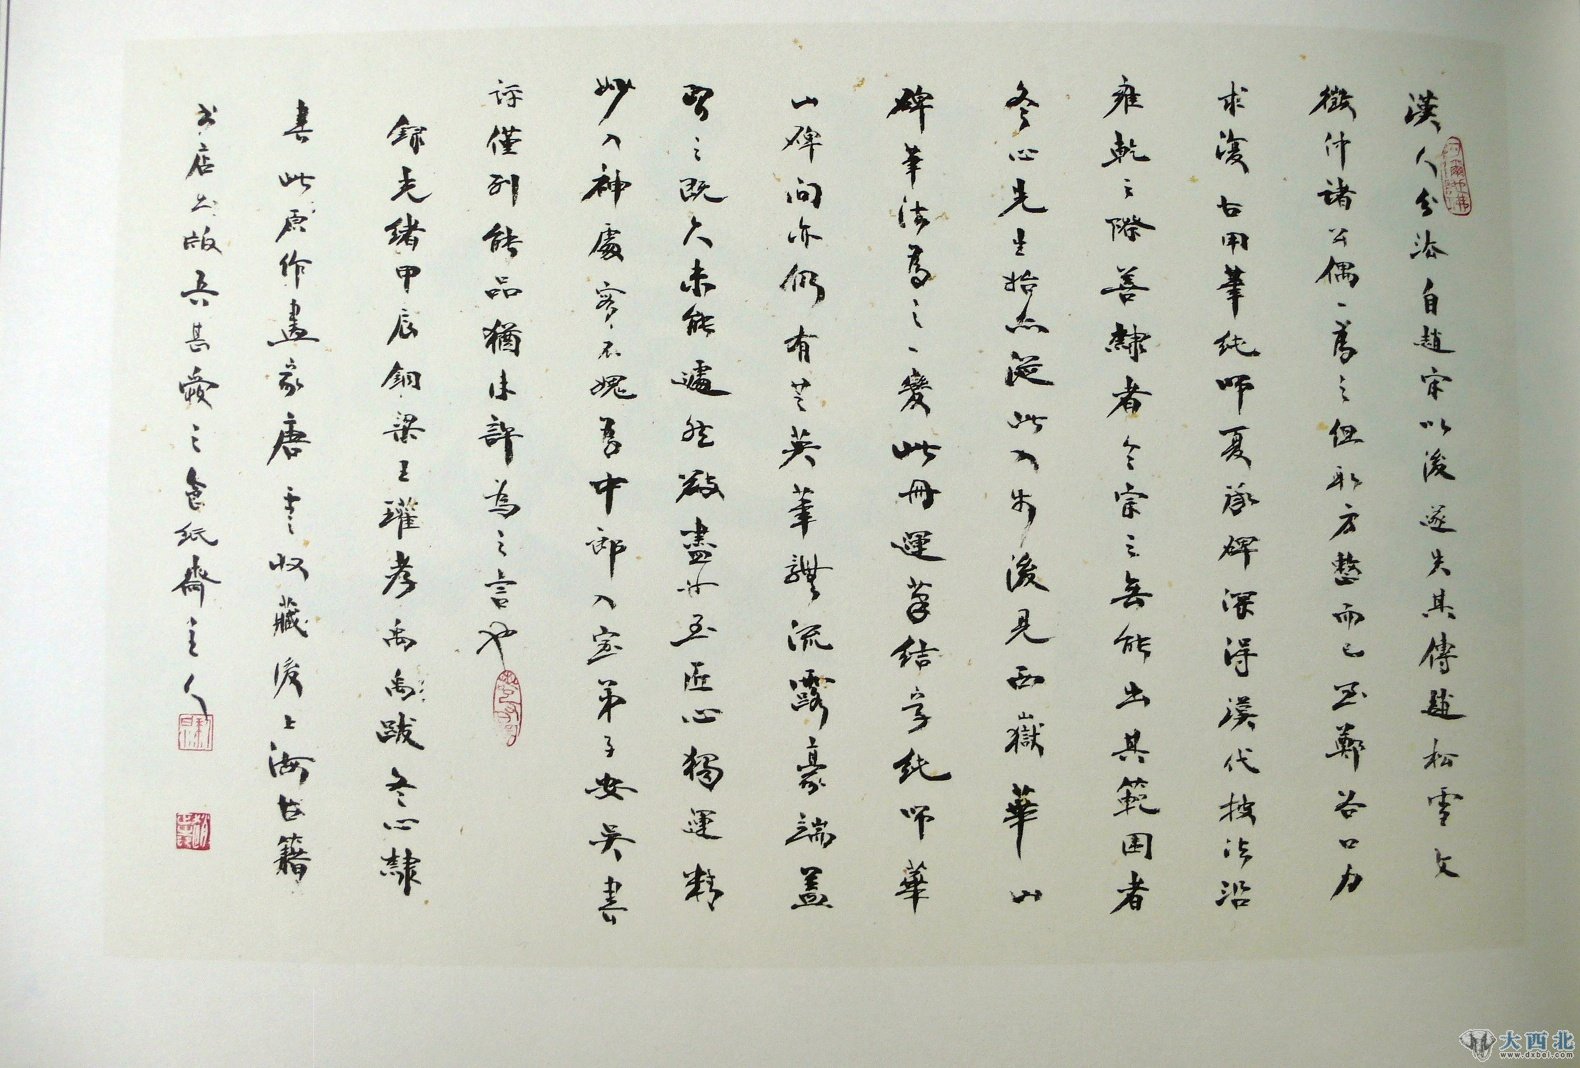 漢人分法自趙宋以後遂失其傳趙松雪文
徵仲諸公偶一為之但取方整而已至鄭谷口力
求復古用筆純師夏承碑深得漢代技法沿
雍乾之際善隸者今宗之無能出其範圍者
冬心先生始亦從此入步後見西嶽華山
碑筆法為之一變此冊運筆結字純師華
山碑間亦仍有芝英筆譔流露豪端蓋
習之既久未能遽然敚盡也至匠心獨運精
妙入神處實不媿為中郎入室弟子安吳書
評僅列能品猶未許為之言也
錄光緒甲辰銅梁王瓘孝禹禹跋冬心隸
書此原作畫家唐雲收藏後上海古籍
書店出版吾甚愛之食紙齋主人
大西北
www.dxbei.com